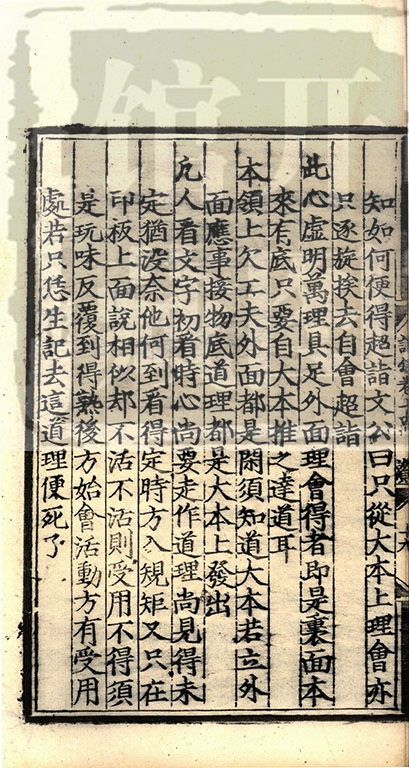 知如何便得超詣文公曰只從大本上理會亦
只逐旋挨去自會超詣
此心虛明萬理具足外面理會得者即是裏面本
來有底只要自大本推之達道耳
本領上欠工夫外面都是閑須知道大本若立外
面應事接物底道理都是大本上發出
凡人看文字初看時心尚要走作道理尚見得未
定猶沒奈他何到看得定時方入規矩又只在
印板上面說相似却不活不活則受用不得須
是玩味反覆到得熟後方始會活動方有受用
處若只恁生記去這道理便死了